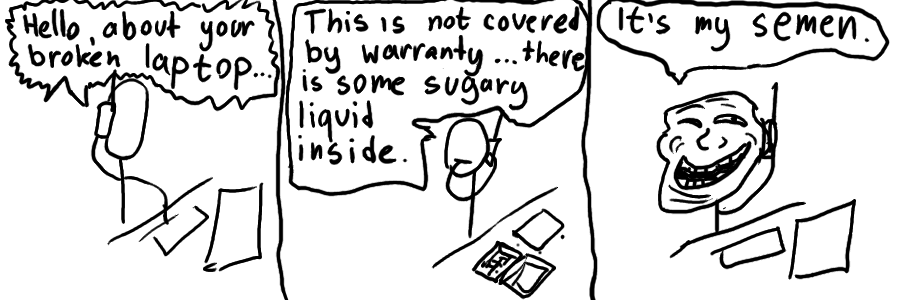 Hello, about your
broken laptop...
This is not covered
by warranty ...there
is some sugary
liquid
inside.
It's my semen.